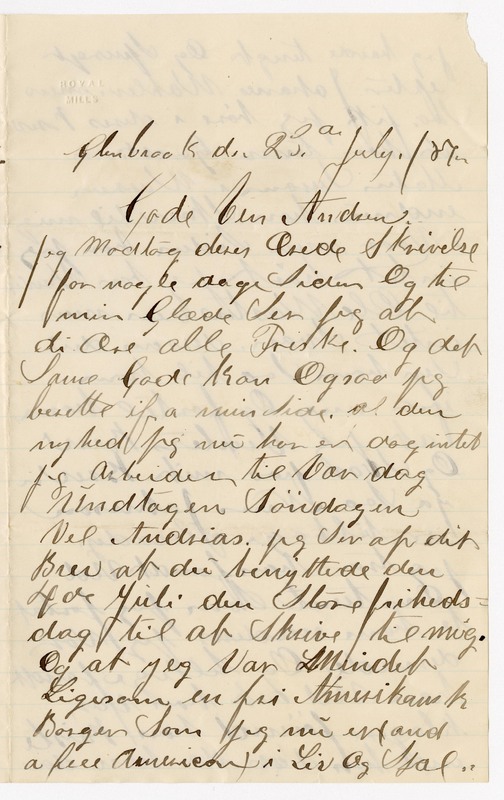 ROYAL
MILLS
Glenbrook dn. 23. July. /87
Gode Ven Andsen.
jeg Modtog deres Ærede Skrivelse
for nogle dage Siden Og til
min Glæde Ser jeg at
di Ere alle Friske. Og det
Same Gode kan Ogsaa jeg
berette if a min Side. al den
nyhed jeg nu har er dog intet
jeg Arbeider til Vær dag
Undtagen Söndagen
Vel Andreas. jeg Ser af dit
Brev at du benyttede den
4de Juli den Store friheds=
dag til at Skrive til mög.
Og at jeg Var Mindet
Ligesom en fri Amerikansk
Borger Som jeg nu er (and
a free American) i Liv Og Sjal.